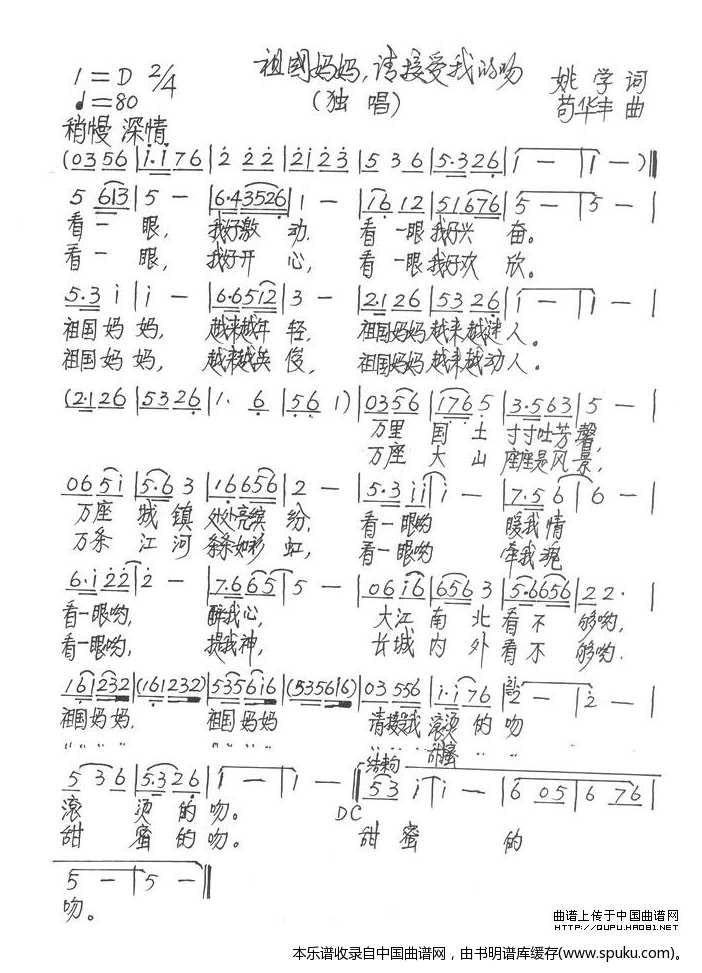 祖国妈妈,请接受我的吻
1=D 2/4
(独 唱)
姚 学 词
♩=80
苟华丰 曲
稍慢 深情
(0356 |1·176 |2 22 |2123 |536 |5·326 |1 — |1 — )‖
5 613 |5 — |6·43526 |1 — |16 12 |51676 |5 — |5 — |
看一 眼, 我好激 动. 看 一眼 我好兴 奋。
看一 眼, 我好开 心, 看 一眼 我好欢 欣。
5·3 1 |1 — |6·6512 |3 — |2·126 |53 26 |1 — |1 — |
祖国妈 妈, 越来越年 轻, 祖国妈妈 越来越迷 人.
祖国妈 妈, 越来越英 俊, 祖国妈妈 越来越动 人.
(2·126 |5326 |1· 6 |56 1) |0356 |176 5 |3·563 |5 — |
万里 国 土 寸寸吐芳 馨,
万座 大 山 座座是风 景,
065 1 |5·6 3 |16656 |2 — |5·3 11 |1 — |7·5 6 |6 — |
万座 城 镇 处处亮缤 纷, 看一眼哟 暖我情
万条 江 河 条条如彩 虹, 看一眼哟 牵我魂
6·1 22 |2 — |7·665 |5 — |06 16 |656 3 |5·6656 |22· |
看一眼哟, 醉我心, 大江 南 北 看 不 够哟,
看一眼哟, 提我神, 长城 内 外 看 不 够哟.
161232 |(161232) |535616 |(535616) |03 556 |1·176 |2 — |2 — |
祖国 妈妈. 祖国 妈妈 请接受我 滚烫 的 吻
〃 〃 〃 〃 〃 〃 〃 〃 〃 〃 甜蜜 〃 〃
结束句
5 36 |5·326 |1 — |1 — ‖53 1 |1 — |6 05 |6 76 |
滚 烫 的吻。 DC
甜 蜜 的吻。 甜 蜜 的
5 — |5 — ‖
吻。
曲谱上传于中国曲谱网
HTTP://QUPU.HAO81.NET
本乐谱收录自中国曲谱网，由书明谱库缓存(www.spuku.com)。